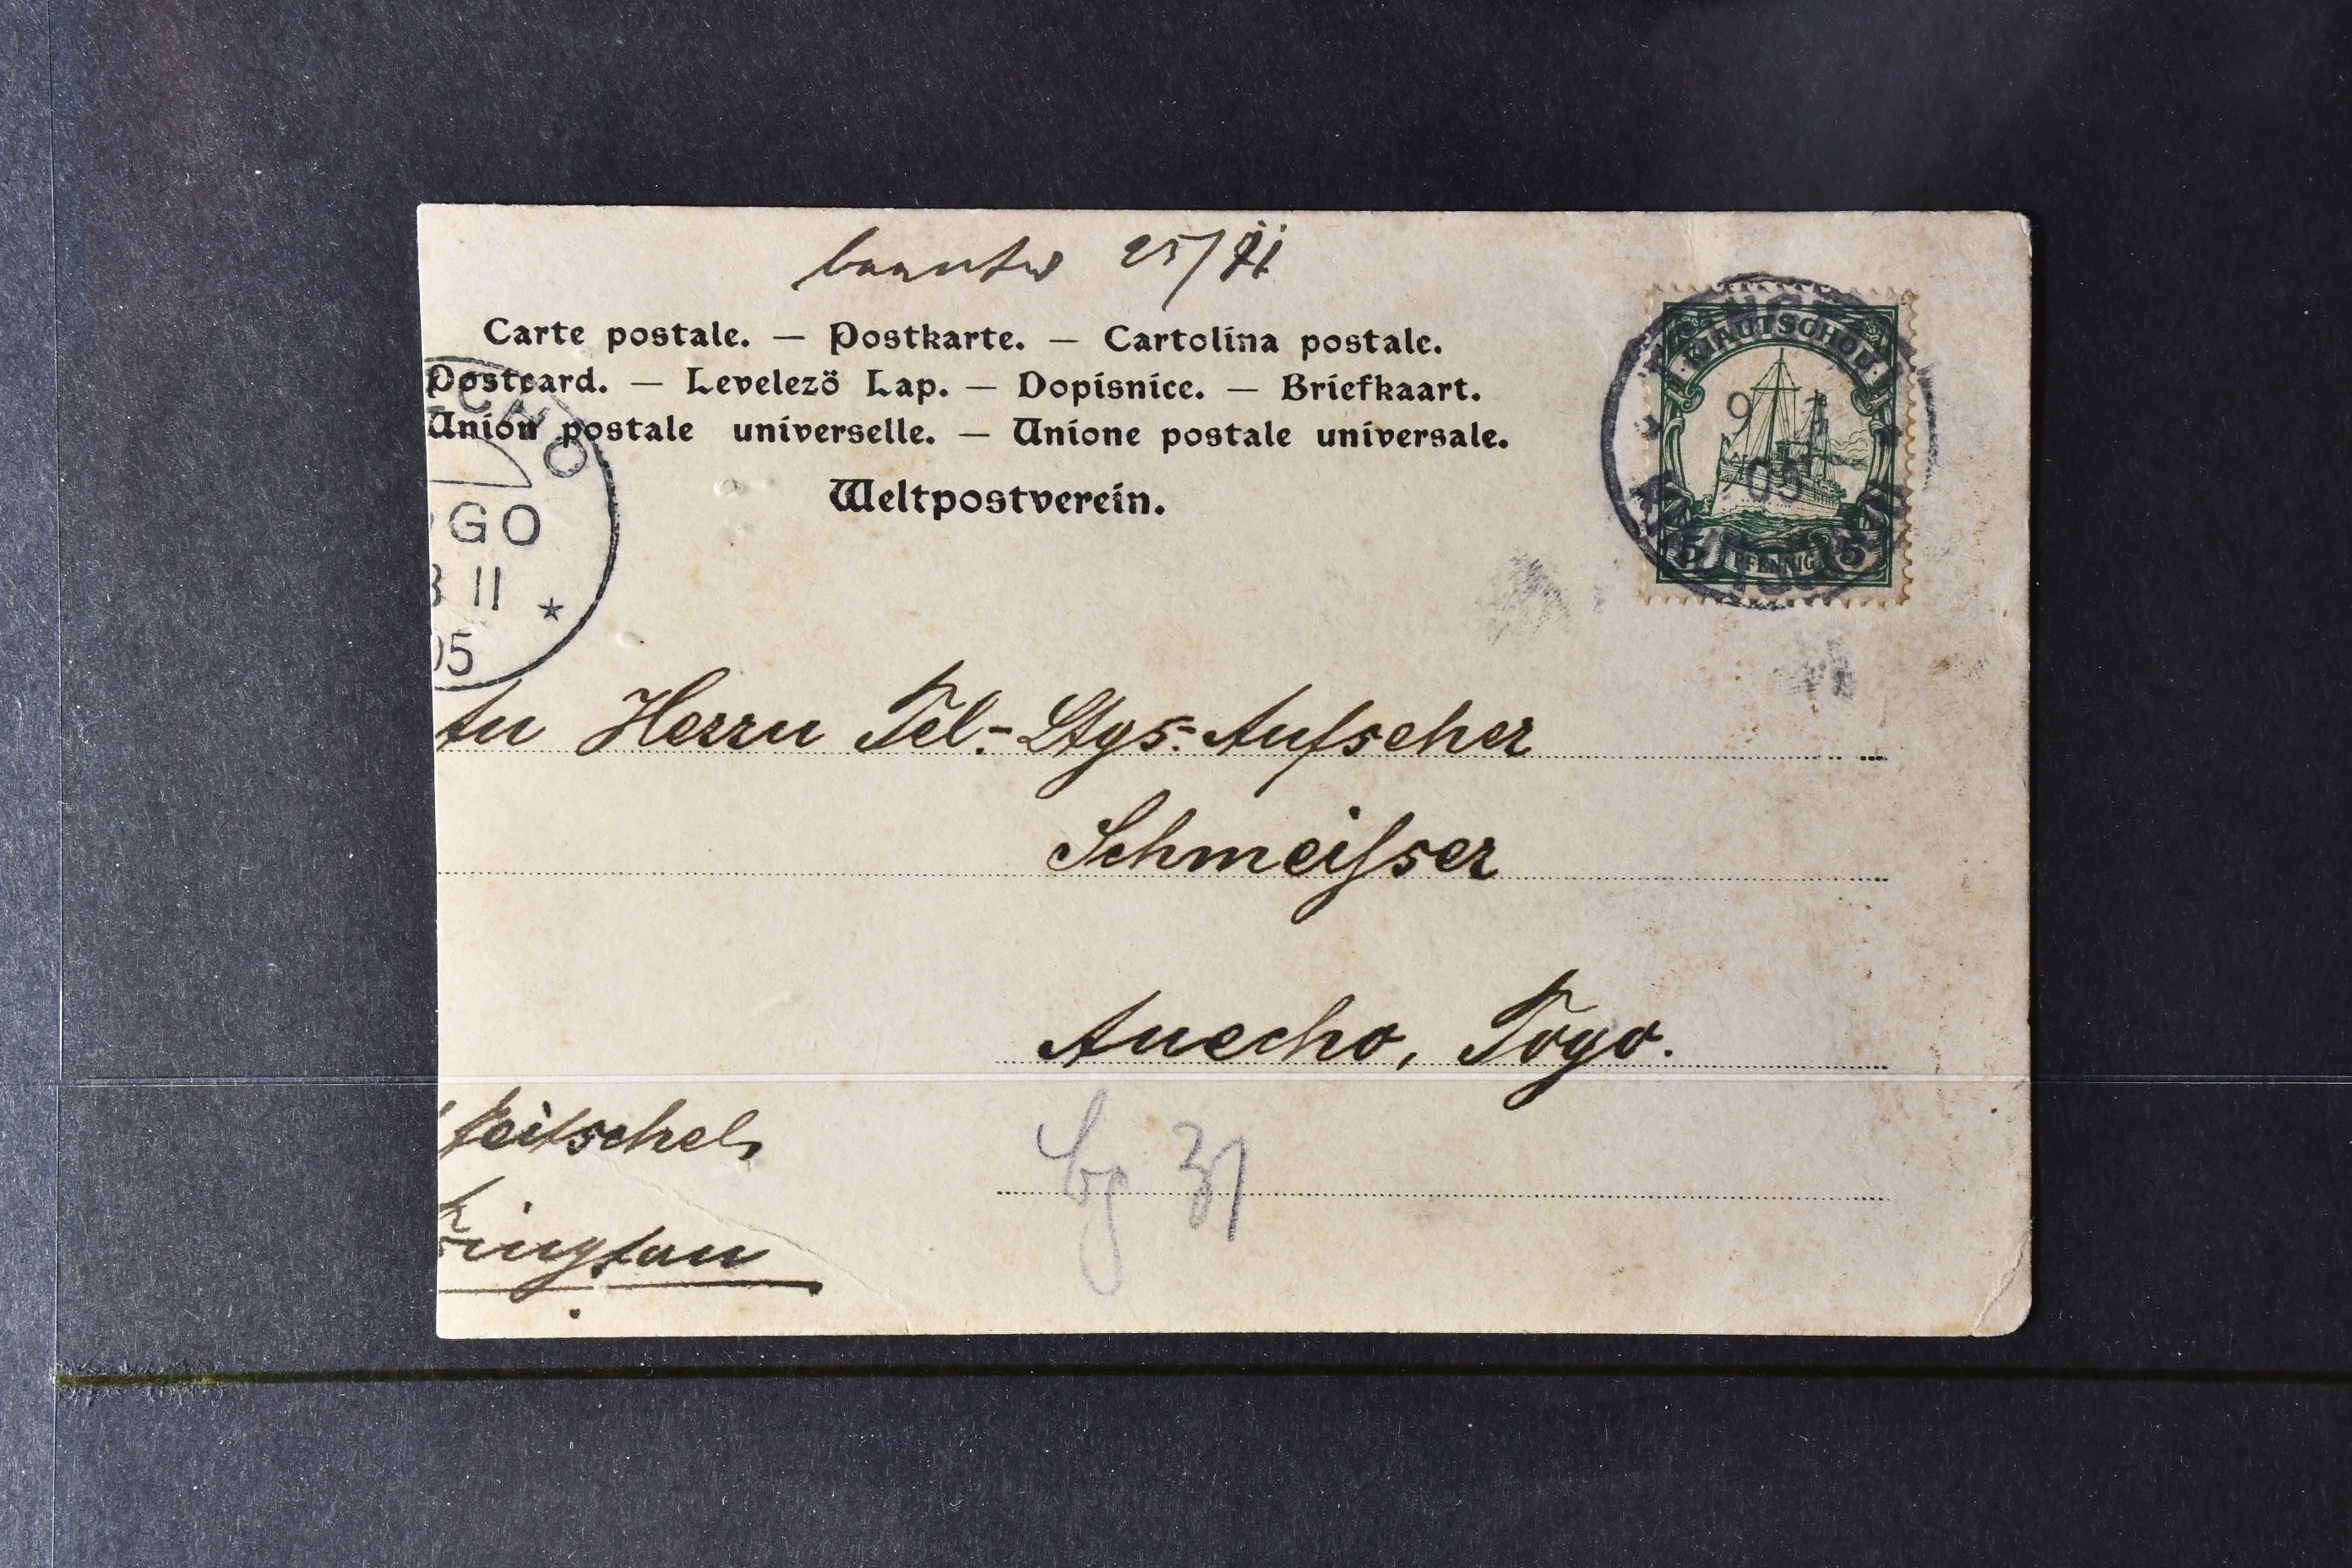 beantw 25/II
Carte postale. — Postkarte. — Cartolina postale.
Postcard. — Levelező Lap. — Dopisnice. — Briefkaart.
Union postale universelle. — Unione postale universale.
Weltpostverein.
KIAUTSCHOU
9 1
05
5 PFENNIG 5
GO
11
05
An Herrn Tel.-Ltgs.-Aufseher
Schmeiſser
Anecho, Togo.
Peitschel,
Tsingtau
bg 31